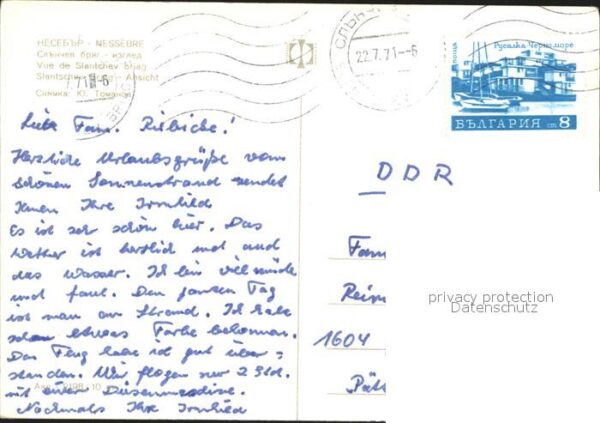 НЕСЕБЪР - NESSEBRE
Слънчев бряг - изглед
Vue de Slantchev Briag
Slantschev Brjag - Ansicht
Снимка: Ю. Томанов
22.7.71-6
7.71-6
Русалка-Черно море
БЪЛГАРИЯ ст 8
Liebe Fam.
Herzliche Urlaubsgrüße vom
schönen Sonnenstrand sendet
Ihnen Ihre Irmhild
Es ist sehr schön hier. Das
Wetter ist herrlich und auch
das Wasser. Ich bin viel müde
und faul. Den ganzen Tag
ist man am Strand. Ich habe
schon etwas Farbe bekommen.
Den Flug habe ich gut über=
standen. Wir flogen nur 2 Std.
mit einer Düsenmaschine.
Nochmals Ihre Irmhild
DDR
Fam
Rein
1604
Pät
privacy protection
Datenschutz